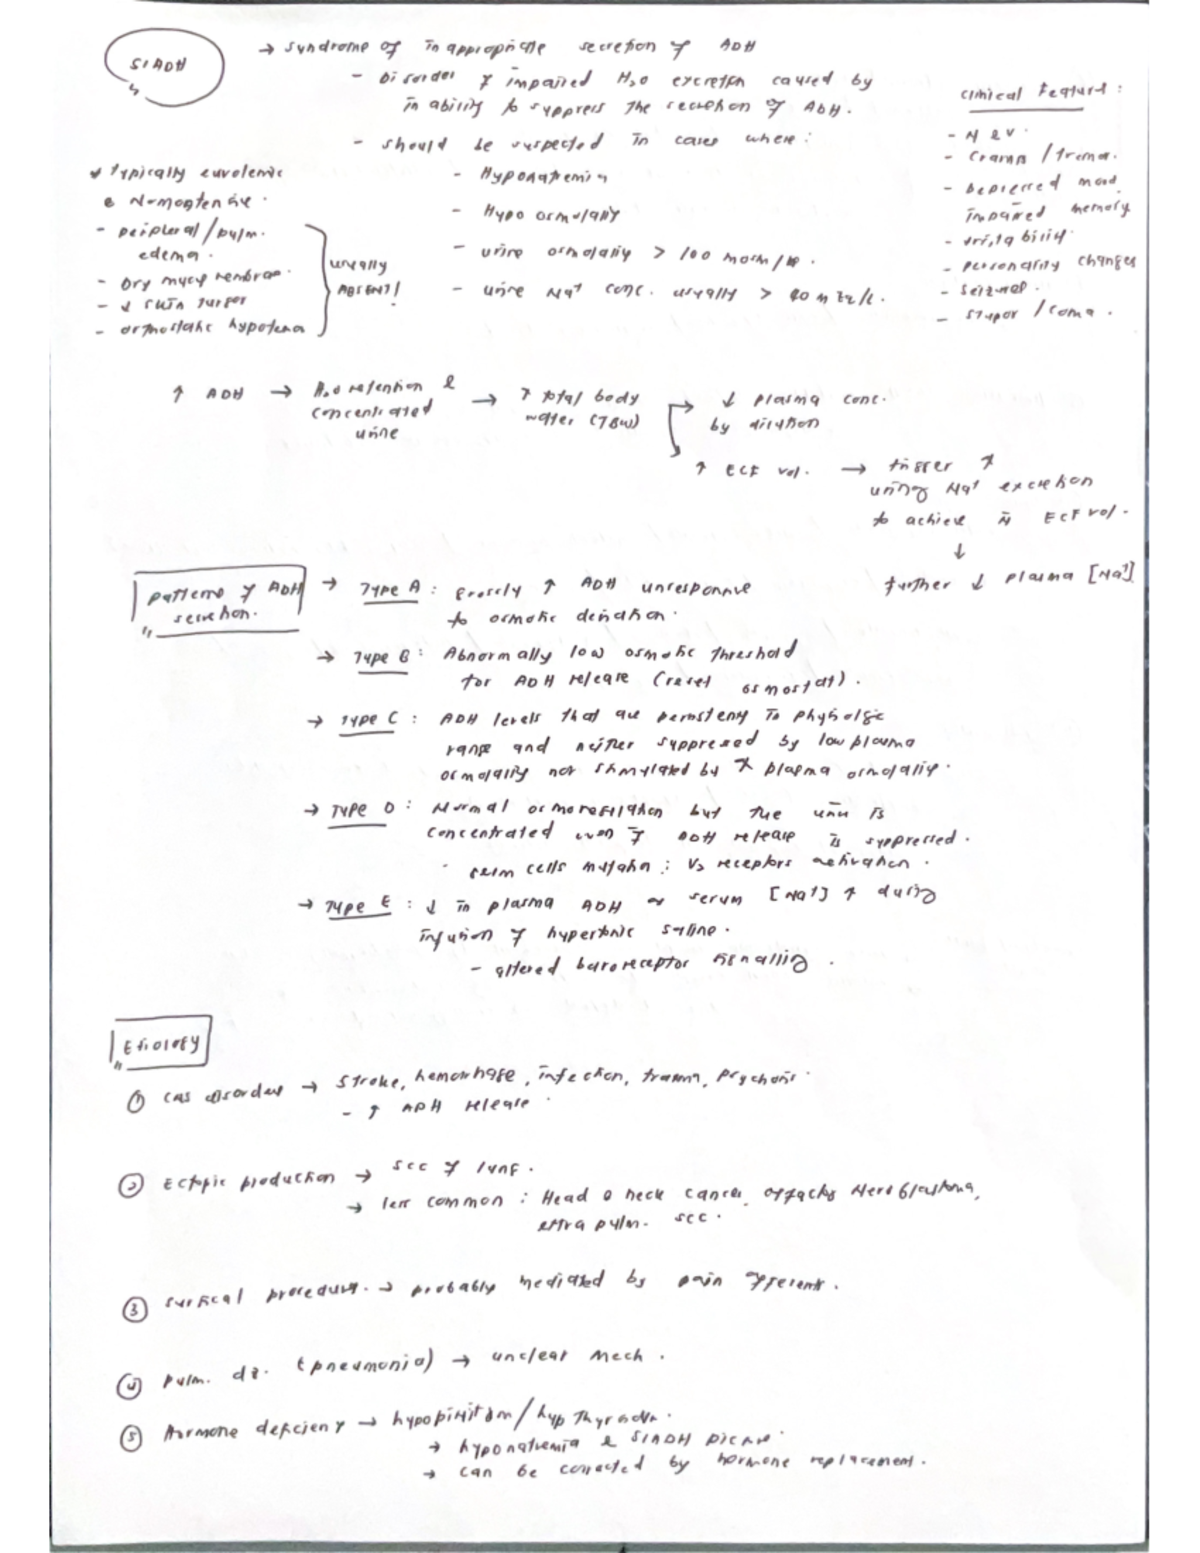 SIADH
→ syndrome of inappropriate secretion of ADH
- Disorder of impaired H2O excretion caused by
inability to suppress the secretion of ADH.
- should be suspected in cases where:
- Hyponatremia
- Hypo osmolality
- urine osmolality > 100 mosm/kg.
- urine Na+ conc. usually > 40 mEq/L.
Clinical Features:
- N & V.
- Cramp / Tremor.
- Depressed mood,
impaired memory
- irritability
- personality changes
- Seizures.
- Stupor / Coma.
Typically euvolemic
& Normotensive.
- peripheral/pulm.
edema.
- Dry mucus membrane.
- ↓ skin turgor
- orthostatic hypotension
usually
ABSENT!
↑ ADH → H2O retention &
concentrated
urine
→ ↑ total body
water (TBW)
→ ↓ plasma conc.
by dilution
↑ ECF vol. → trigger ↑
urinary Na+ excretion
to achieve N ECF vol.
↓
further ↓ plasma [Na+]
patterns of ADH
secretion.
→ Type A: Grossly ↑ ADH unresponsive
to osmotic deviation.
→ Type B: Abnormally low osmotic threshold
for ADH release (reset osmostat).
→ Type C: ADH levels that are persistently in physiologic
range and neither suppressed by low plasma
osmolality nor stimulated by ↑ plasma osmolality.
→ Type D: Normal osmoregulation but the urine is
concentrated even if ADH release is suppressed.
- germ cells mutation: V2 receptors activation.
→ Type E: ↓ in plasma ADH as serum [Na+] ↑ during
infusion of hypertonic saline.
- altered baroreceptor signalling.
Etiology
① CNS disorders → Stroke, hemorrhage, infection, trauma, psychosis.
- ↑ ADH release.
② Ectopic production → SCC of lung.
→ less common: Head & neck cancer, olfactory Neuroblastoma,
extra pulm. SCC.
③ Surgical procedures. → probably mediated by pain afferents.
④ pulm. dz. (pneumonia) → unclear mech.
⑤ Hormone deficiency →
→ hyponatremia & SIADH picture.
→ can be corrected by hormone replacement.